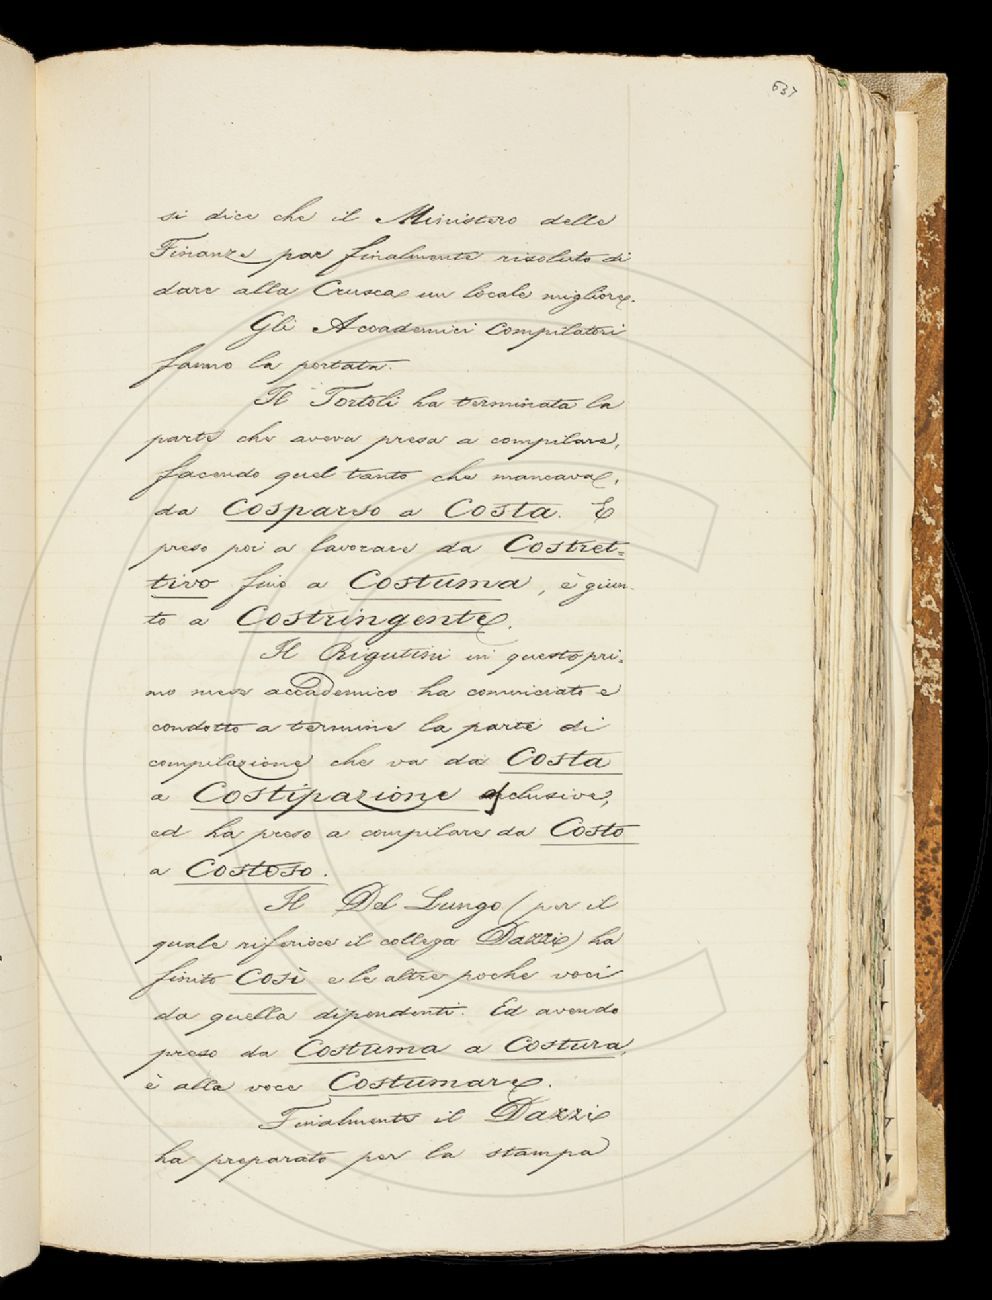 637
si dice che il Ministero delle
Finanze par finalmente risoluto di
dare alla Crusca un locale migliore.
Gli Accademici Compilatori
fanno la portata.
Il Tortoli ha terminata la
parte che aveva presa a compilare,
facendo quel tanto che mancava,
da Cosparso a Costa. E
preso poi a lavorare da Costret=
tivo fino a Costuma, è giun-
to a Costringente.
Il Rigutini in questo pri=
mo mese accademico ha cominciato e
condotto a termine la parte di
compilazione che va da Costa
a Costipazione inclusive,
ed ha preso a compilare da Costo
a Costoso.
Il Del Lungo (per il
quale riferisce il collega Dazzi) ha
finito Così e le altre poche voci
da quella dipendenti. Ed avendo
preso da Costuma a Costura,
è alla voce Costumare.
Finalmente il Dazzi
ha preparato per la stampa